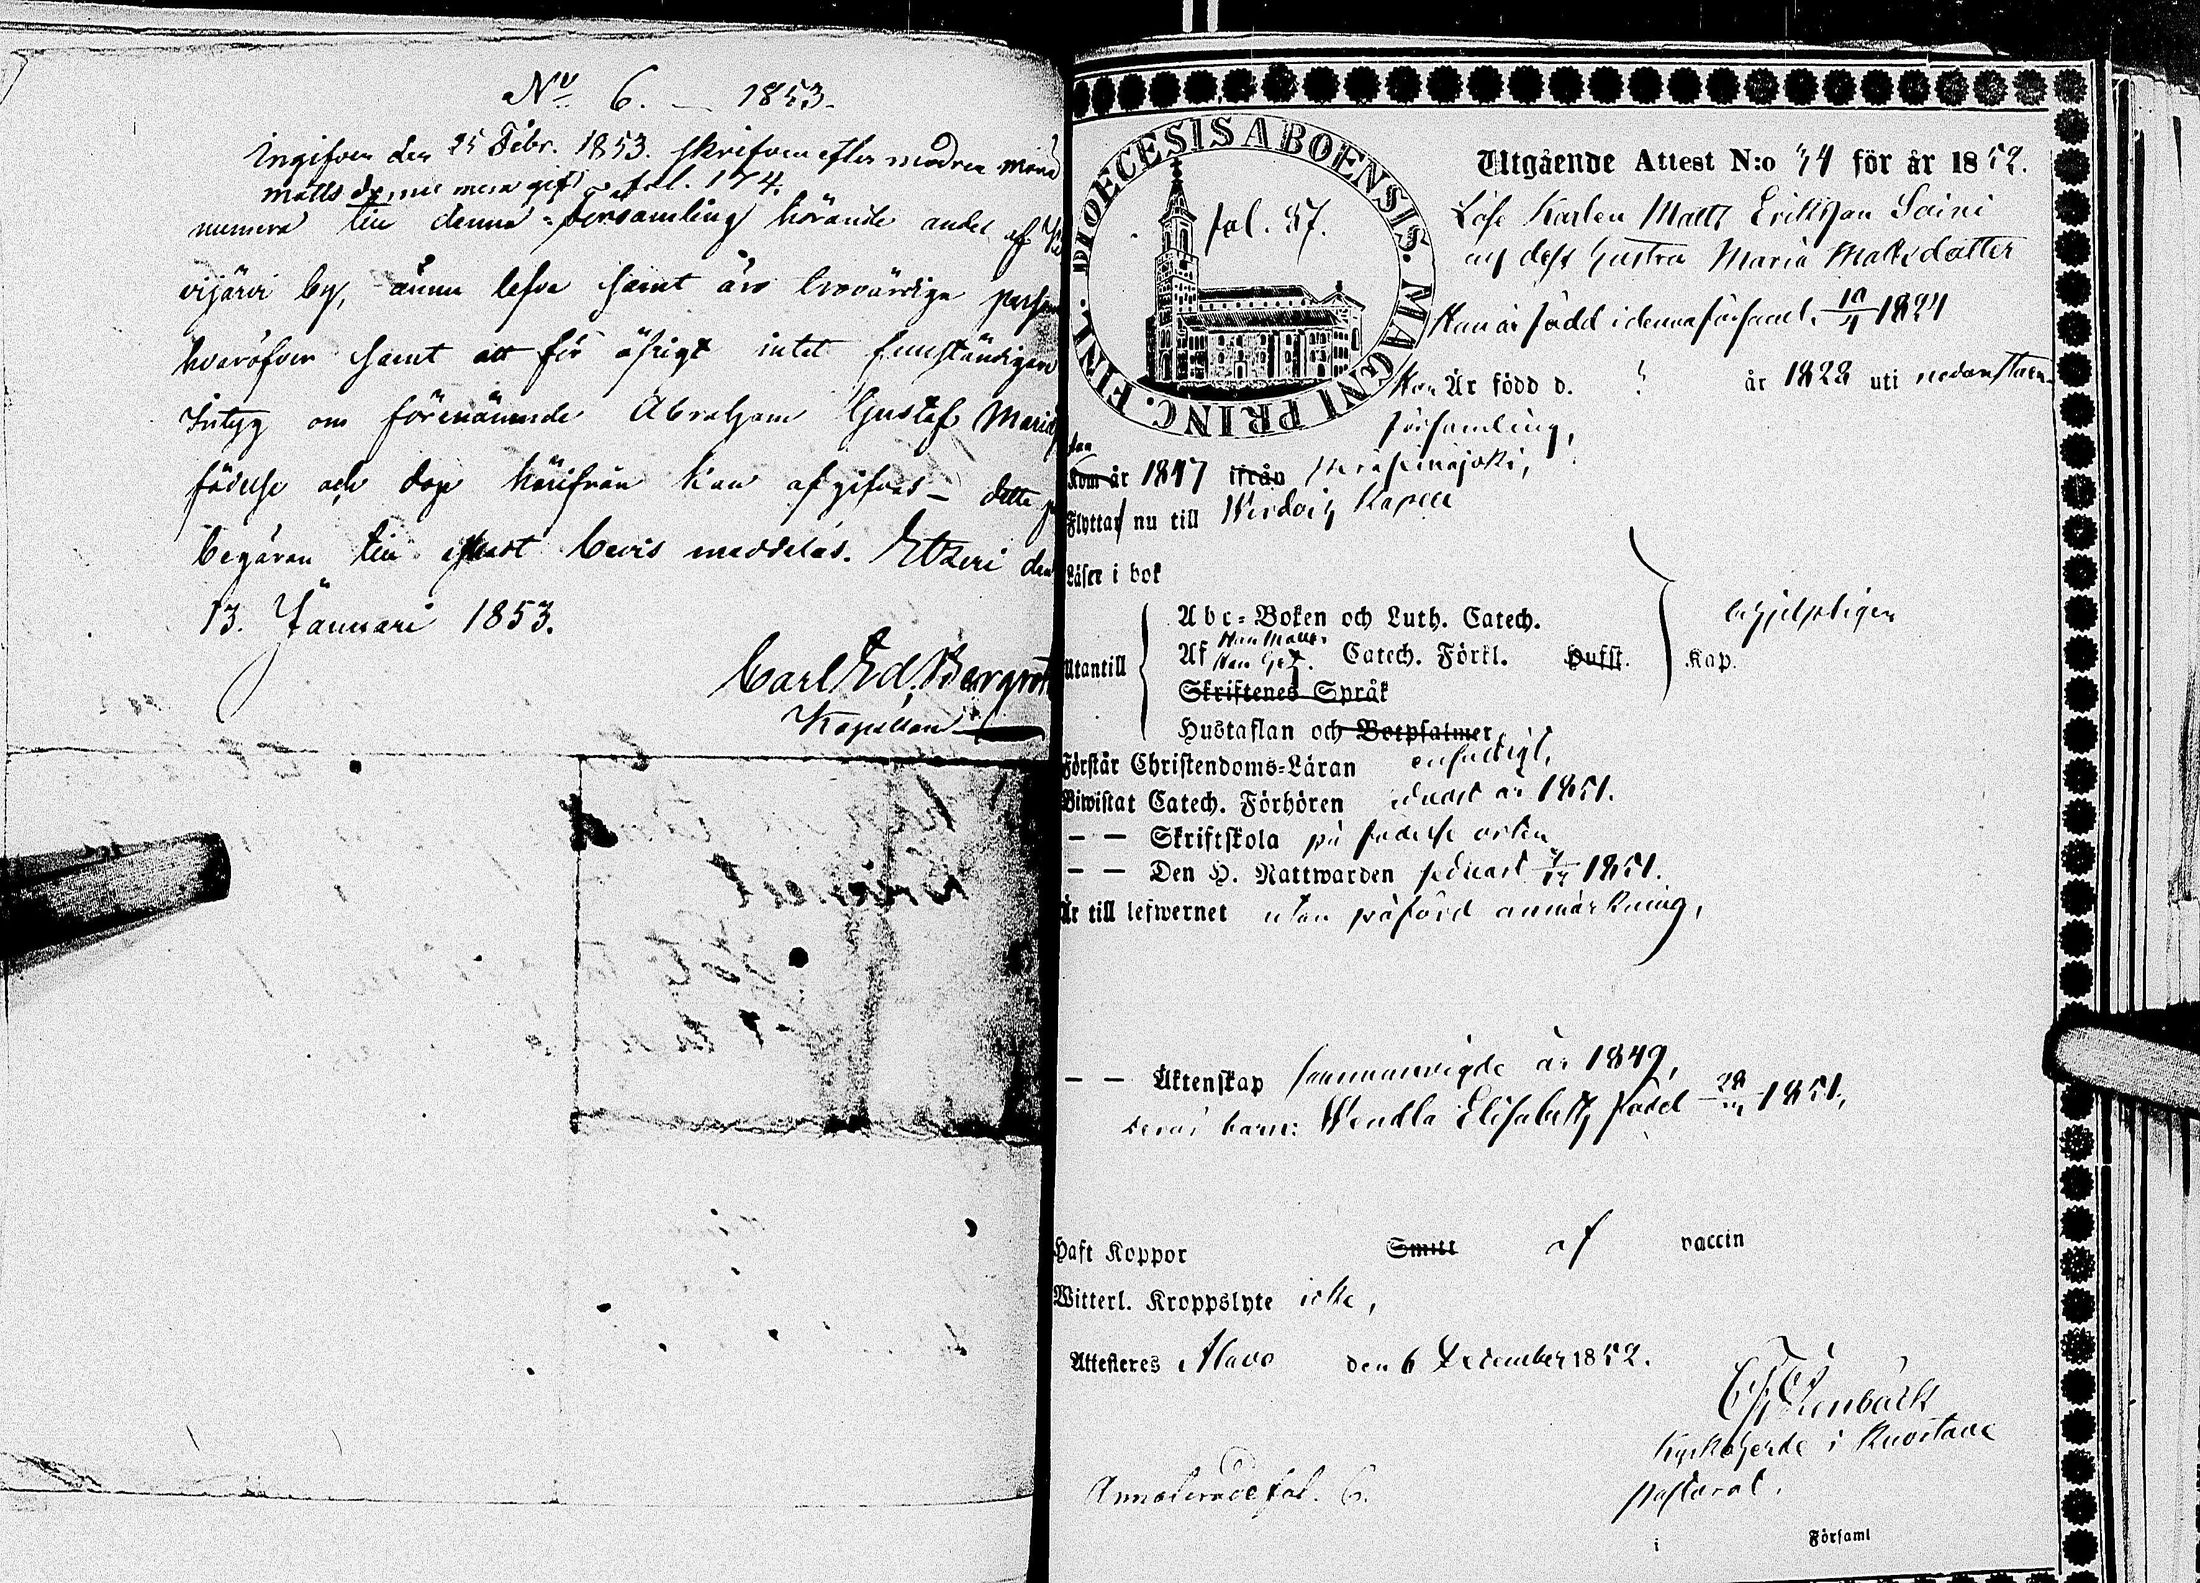 No 6. – 1853.
Ingifven den 25 Febr. 1853. skrifven efter modren Maria
Matts dr, nu mera gift fol. 174.
numera till denna Församling hörande andel af
vijärvi by, ännu lefva samt äro trovärdiga
hvaröfver samt att för öfrigt intet fullständigare
Intyg om förenämnde Abraham Gustaf Mariæ
födelse och dop härifrån kan afgifvas – dette
begäran till bevis meddelas. Etzeri den
13. Januari 1853.
Carl Ed. Bergroth
Kapellan
DIOECESIS ABOENSIS. MAGNI PRINC. FINL.
fol. 87.
Utgående Attest N:o 74 för år 1852.
Löse Karlen Matts Eriksson Saini
och dess hustru Maria Mattsdotter
Han är född i denna församl. 1824
Hon Är född d. ? år 1828 uti nedanstående
församling,
hon
Kom år 1847 ifrån Peräseinäjoki,
Flyttar nu till Wirdois Kapell
Läser i bok
Utantill
Abc-Boken och Luth. Catech.
Af Catech. Förkl. Hufst. Kap. behjelpligen
Skriftenes Språk
Hustaflan och Botpsalmer
Förstår Christendoms-Läran enfaldigt,
Biwistat Catech. Förhören sednast år 1851.
– – Skriftskola på födelse orten
– – Den H. Nattwarden sednast 1851.
Är till lefwernet utan påförd anmärkning,
– – Äktenskap sammanvigde år 1849,
deras barn: Wendla Elisabeth, född 1851,
Haft Koppor Smitt af vaccin
Witterl. Kroppslyte icke,
Attesteres Alavo den 6 December 1852.
Kyrkoherde i Kuortane
pastorat.
fol. 6.
i Församl